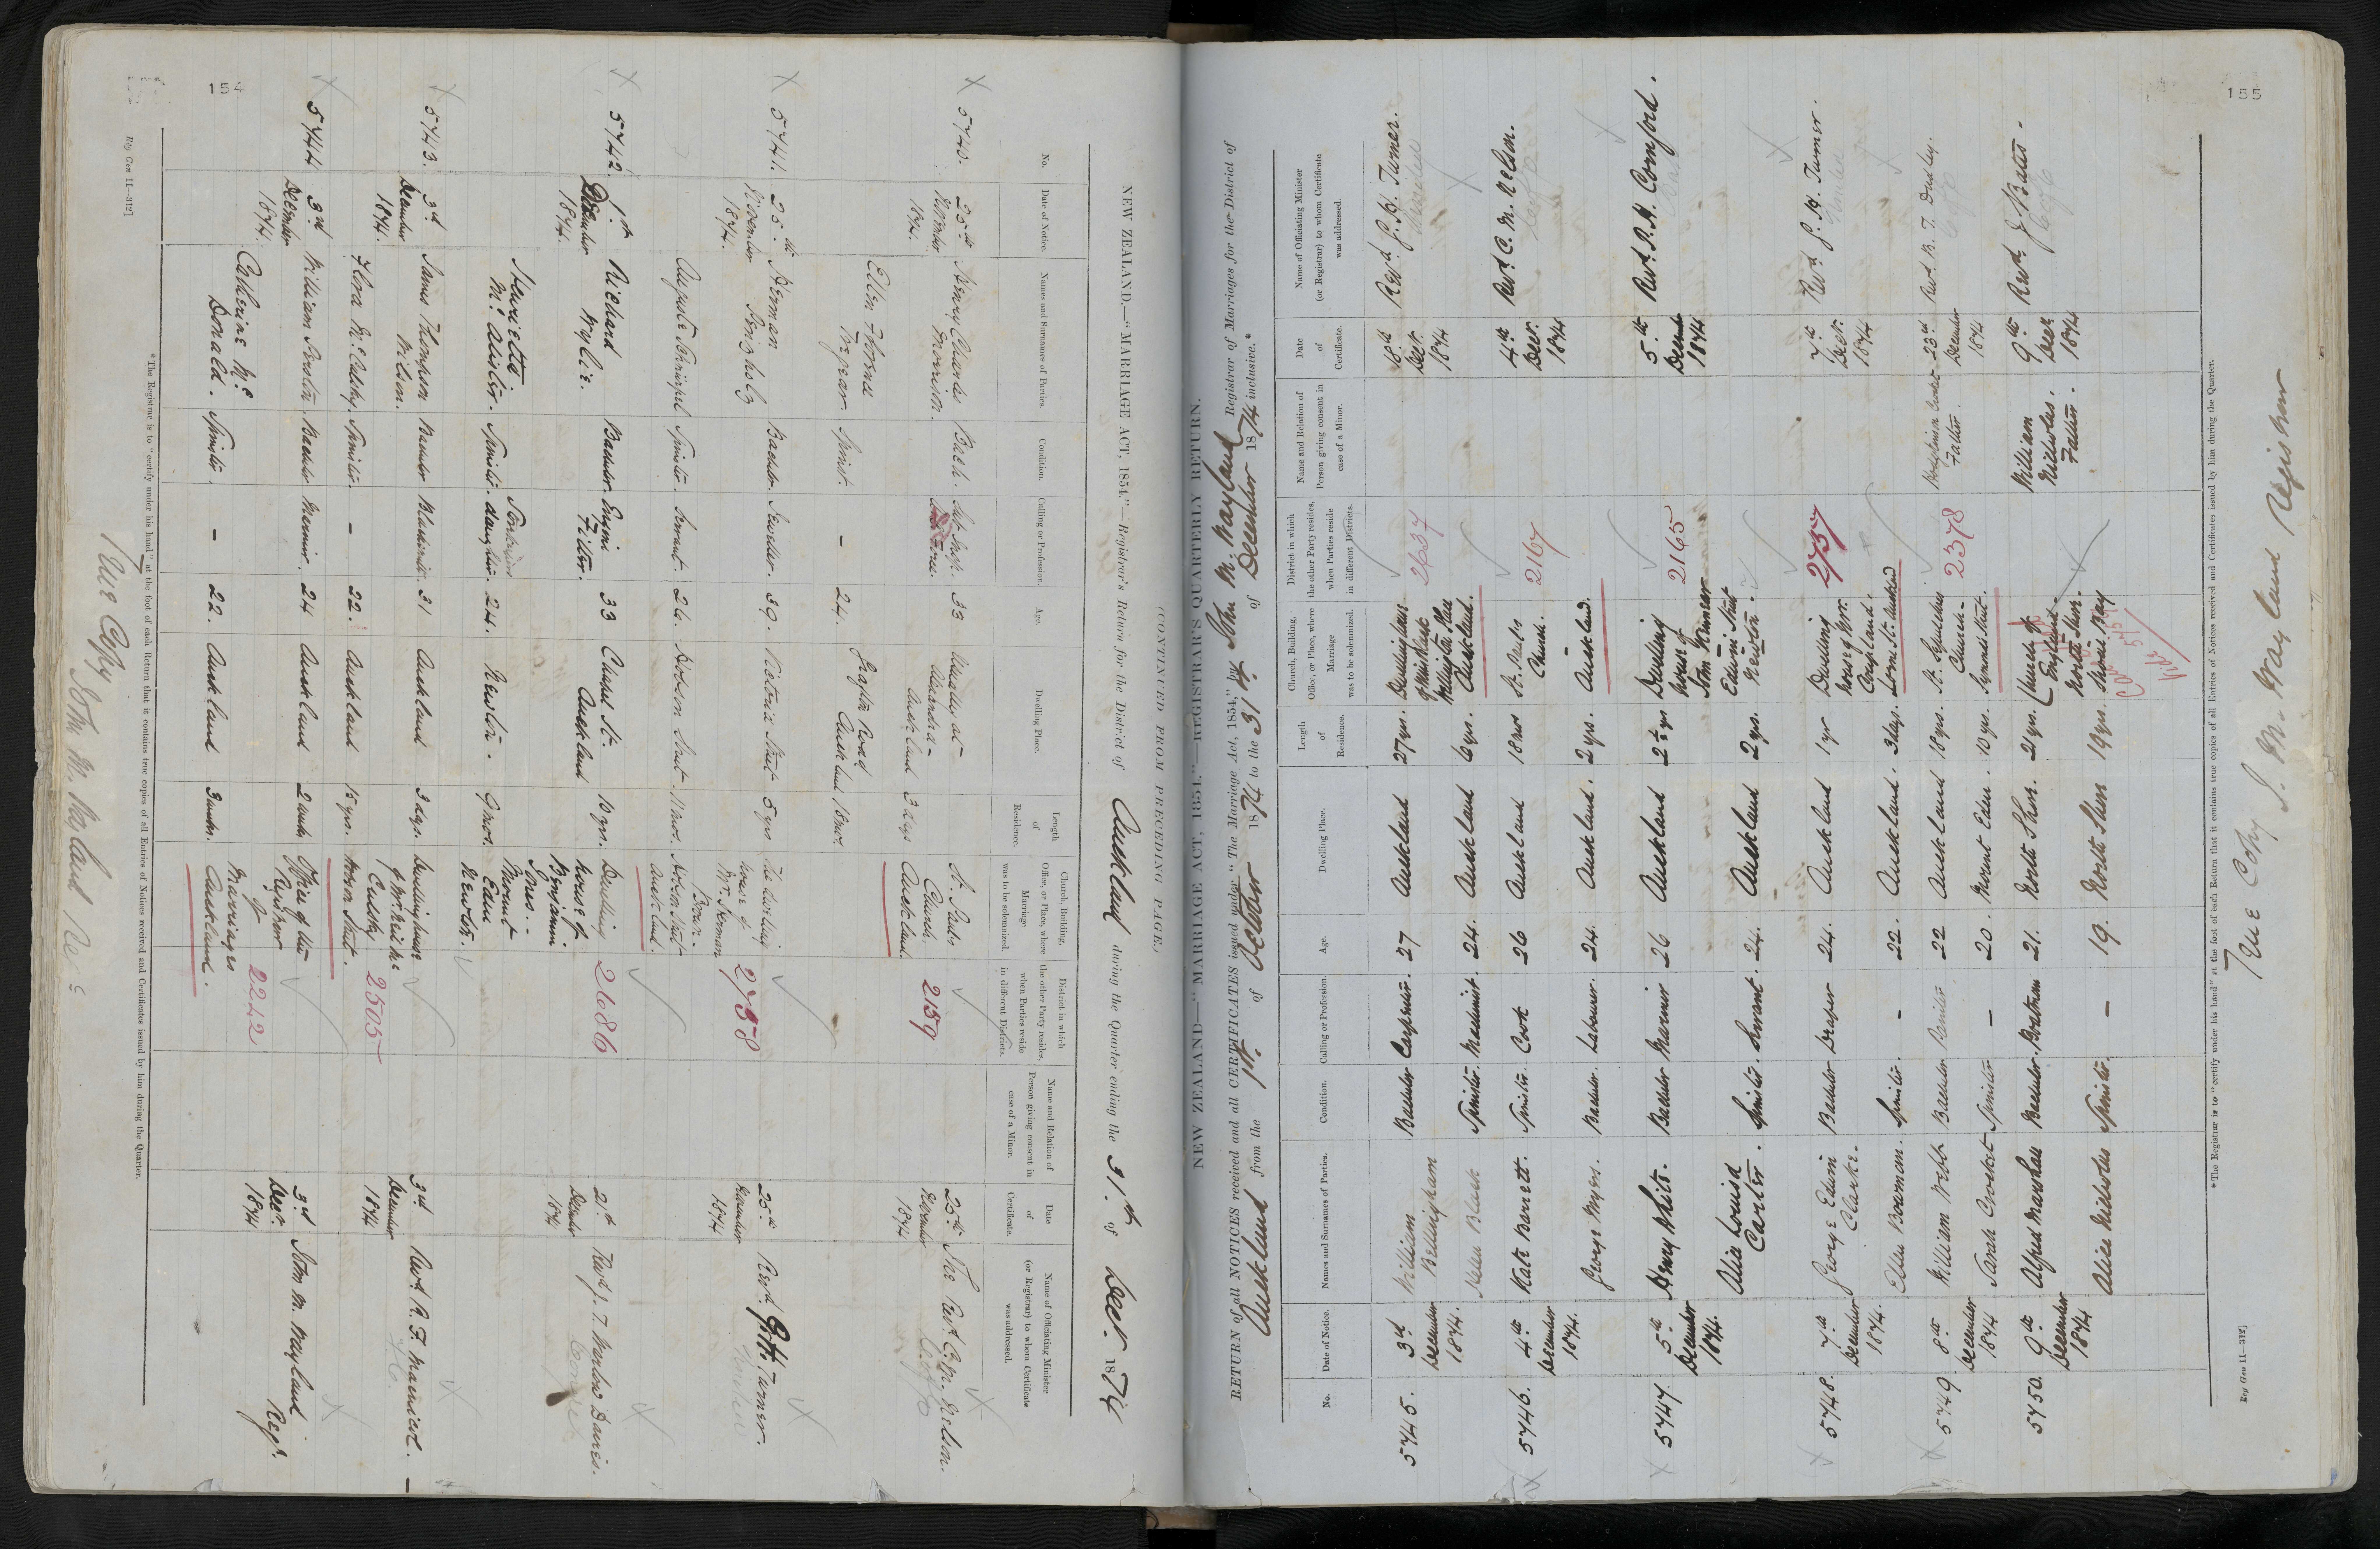 154
(CONTINUED FROM PRECEDING PAGE.)
NEW ZEALAND.—"MARRIAGE ACT, 1854."—Registrar's Return for the District of Auckland during the Quarter ending the 31st of Decr. 1874
No.
Date of Notice.
Names and Surnames of Parties.
Condition.
Calling or Profession.
Age.
Dwelling Place.
Length of Residence.
Church, Building, Office, or Place, where Marriage was to be solemnized.
District in which the other Party resides, when Parties reside in different Districts.
Name and Relation of Person giving consent in case of a Minor.
Date of Certificate.
Name of Officiating Minister (or Registrar) to whom Certificate was addressed.
5740. 25th November 1874. Henry Charles Morrison. Bach. Sub Insp. 33 Auckland 3 dys St. Pauls Church Auckland 2159 25th November 1874 The Revd. C. M. Nelson.
Ellen Thorne Spinst. – 24. Grafton Road Auckland
5741. 25th November 1874. Herman Bachelor Jeweller. 39. Victoria Street 5 yrs The dwelling house of Mr. Herman Hobson Street Auckland. 2758 25th November 1874 Revd. Turner.
Auguste Spinster. Servant. 26. Hobson Street 11 mos.
5742. 1st December 1874. Richard Wylie. Bachelor. Engine Fitter. 33 Auckland 10 yrs. Dwelling house of Benjamin Jones. Mount Eden Newton. 2686 2nd December 1874 Revd. J. T. Marlow Davies.
Henrietta McAlister. Spinster. 24. Newton. 9 mos.
5743. 3rd December 1874. James Thompson Wilson. Bachelor Blacksmith. 31 Auckland 3 dys. Dwelling house of Mr. Hobson Street. 2505 3rd December 1874 Revd. R. F. Macnicol.
Flora Spinster. – 22. Auckland 15 yrs.
5744. 3rd December 1874. William Bachelor Mariner. 24 Auckland 2 weeks Office of the Registrar of Marriages Auckland. 2242 3rd Decr. 1874 John M. Wayland Regr.
Catherine McDonald. Spinster. – 22. Auckland 3 weeks.
*The Registrar is to "certify under his hand" at the foot of each Return that it contains true copies of all Entries of Notices received and Certificates issued by him during the Quarter.
True Copy
John M. Wayland
Reg Gen 11—312]
155
NEW ZEALAND.—"MARRIAGE ACT, 1854."—REGISTRAR'S QUARTERLY RETURN.
RETURN of all NOTICES received and all CERTIFICATES issued under "The Marriage Act, 1854," by John M. Wayland Registrar of Marriages for the District of
Auckland from the 1st of October 1874 to the 31st of December 1874 inclusive.*
No.
Date of Notice.
Names and Surnames of Parties.
Condition.
Calling or Profession.
Age.
Dwelling Place.
Length of Residence.
Church, Building, Office, or Place, where Marriage was to be solemnized.
District in which the other Party resides, when Parties reside in different Districts.
Name and Relation of Person giving consent in case of a Minor.
Date of Certificate.
Name of Officiating Minister (or Registrar) to whom Certificate was addressed.
5745. 3rd December 1874. William Bellingham Bachelor Carpenter. 27 Auckland 27 yrs. Dwelling house Auckland. 2637 Decr. 1874 Revd. Turner.
Helen Black Spinster. Machinist. 24. Auckland 6 yrs.
5746. 4th December 1874. Kate Barrett. Spinster. Cook 26 Auckland 18 mos St. Pauls Church. Auckland. 2167 4th Decr. 1874 Revd. C. M. Nelson.
George Myers. Bachelor. Labourer. 24. Auckland. 2 yrs.
5747. 5th December 1874. Henry White. Bachelor Mariner 26 Auckland 2½ yrs Dwelling house of Edwin Street Newton. 2165 5th December 1874 Revd. Comford.
Alice Louisa Carter. Spinster. Servant. 24. Auckland 2 yrs.
5748. 7th December 1874. George Edwin Clarke. Bachelor Draper 24. Auckland 1 yr Dwelling house of Mr. Coupland. Lorne St. Auckland 2757 7th Decr. 1874 Revd. Turner.
Ellen Bowman. Spinster. – 22. Auckland. 3 days.
5749. 8th December 1874 William Webb Bachelor Painter 22 Auckland 18 yrs. St. Sepulchres Church. Symonds Street. 2378 Father. 23rd December 1874 Revd. B. T. Dudley.
Sarah Spinster – 20. Mount Eden. 10 yrs.
5750. 9th December 1874 Alfred Marshall Bachelor. Boatman 21. North Shore. 21 yrs. Church of England. North Shore. William Nicholas. Father. 9th Decr. 1874 Revd. J. Bates.
Alice Nicholas Spinster. – 19. North Shore 19 yrs.
*The Registrar is to "certify under his hand" at the foot of each Return that it contains true copies of all Entries of Notices received and Certificates issued by him during the Quarter.
True Copy J. M. Wayland Registrar
Reg Gen 11—312]